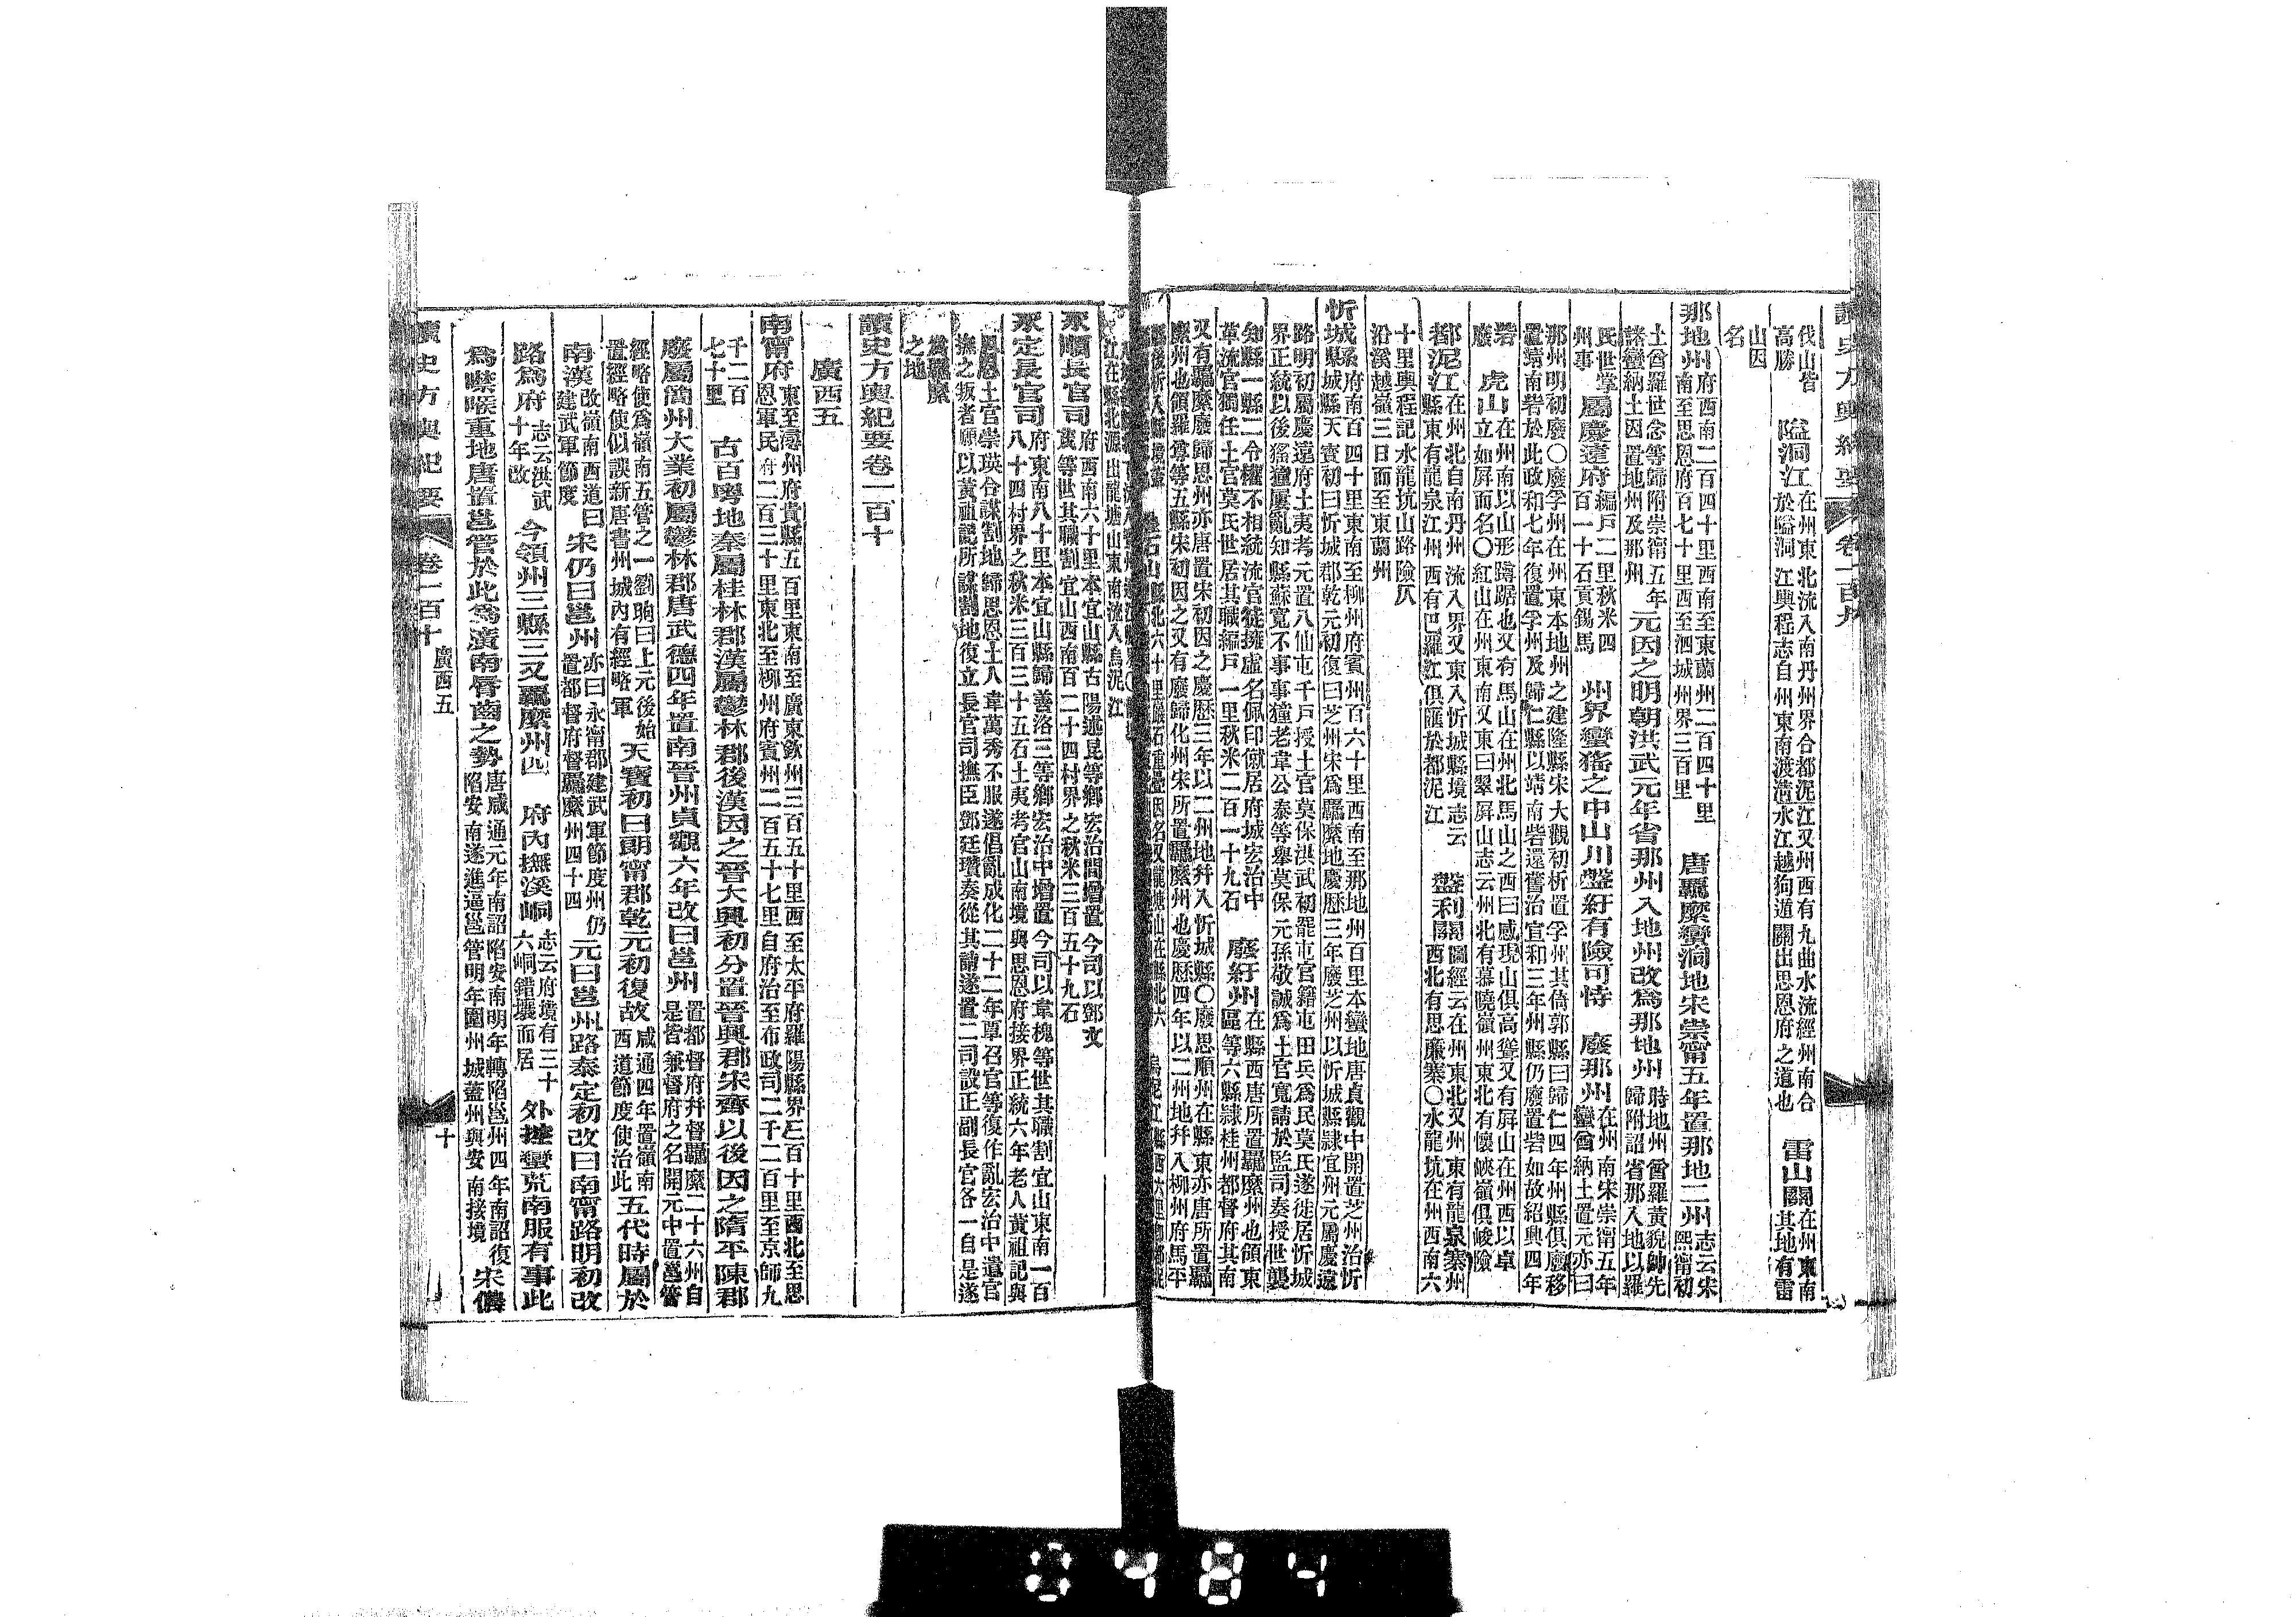 讀史方輿紀要 卷一百九
伐山皆
高勝 隘洞江 在州東北流入南丹州界合都泥江又州西有九曲水流經州南合
於隘洞江輿程志自州東南渡清水江越狗道關出思恩府之道也 雷山關 在州東南
其地有雷
山因
名
那地州 府西南二百四十里西南至東蘭州二百四十里
南至思恩府百七十里西至泗城州界三百里 唐羈縻蠻洞地宋崇甯五年置那地二州 志云宋
熙甯初
土酋羅世念等歸附崇甯五年
諸蠻納土因置地州及那州 元因之明朝洪武元年省那州入地州改爲那地州 時地州酋羅黃貌帥先
歸附詔省那入地以羅
氏世掌
州事 屬慶遠府 編戶二里秋米四
百一十石貢錫馬 州界蠻猺之中山川盤紆有險可恃 廢那州 在州南宋崇甯五年
蠻酋納土置元亦曰
那州明初廢○廢孚州在州東本地州之建隆縣宋大觀初析置孚州其倚郭縣曰歸仁四年州縣俱廢移
置靖南砦於此政和七年復置孚州及歸仁縣以靖南砦還舊治宣和三年州縣仍廢置砦如故紹興四年
砦
廢 虎山 在州南以山形蹲踞也又有馬山在州北馬山之西曰感現山俱高聳又有屏山在州西以卓
立如屏而名○紅山在州東南又東曰翠屏山志云州北有慕曉嶺州東北有懷峽嶺俱峻險
都泥江 在州北自南丹州流入界又東入忻城縣境志云
縣東有龍泉江州西有巴羅江俱匯於都泥江 盤利關 圖經云在州東北又州東有龍泉寨州
西北有思廉寨○水龍坑在州西南六
十里輿程記水龍坑山路險仄
沿溪越嶺三日而至東蘭州
忻城縣 府南百四十里東南至柳州府賓州百六十里西南至那地州百里本蠻地唐貞觀中開置芝州治忻
城縣天寶初曰忻城郡乾元初復曰芝州宋爲羈縻地慶歷三年廢芝州以忻城縣隸宜州元屬慶遠
路明初屬慶遠府土夷考元置八仙屯千戶授土官莫保洪武初罷屯官籍屯田兵爲民莫氏遂徙居忻城
界正統以後猺獞屢亂知縣蘇寬不事事獞老韋公泰等舉莫保元孫敬誠爲土官寬請於監司奏授世襲
知縣一縣二令權不相統流官徒擁虛名佩印僦居府城宏治中
革流官獨任土官莫氏世居其職編戶一里秋米二百一十九石 廢紆州 在縣西唐所置羈縻州也領東
區等六縣隸桂州都督府其南
又有羈縻廢歸思州亦唐置宋初因之慶歷三年以二州地幷入忻城縣○廢思順州在縣東亦唐所置羈
縻州也領羅遵等五縣宋初因之又有廢歸化州宋所置羈縻州也慶歷四年以二州地幷入柳州府馬平
江在縣北源出龍塘山東南流入烏泥江
永順長官司 府西南六十里本宜山縣古陽述昆等鄉宏治間增置今司以鄧文
茂等世其職割宜山西南百二十四村界之秋米三百五十九石
永定長官司 府東南八十里本宜山縣歸善洛三等鄉宏治中增置今司以韋槐等世其職割宜山東南一百
八十四村界之秋米三百三十五石土夷考官山南境與思恩府接界正統六年老人黃祖記與
思恩土官岑瑛合謀割地歸思恩土人韋萬秀不服遂倡亂成化二十二年覃召官等復作亂宏治中遣官
撫之叛者願以黃祖記所謀割地復立長官司撫臣鄧廷瓚奏從其請遂置二司設正副長官各一自是遂
爲羈縻
之地
讀史方輿紀要卷一百十
廣西五
南甯府 東至潯州府貴縣五百里東南至廣東欽州三百五十里西至太平府羅陽縣界三百十里西北至思
恩軍民府二百三十里東北至柳州府賓州二百五十七里自府治至布政司二千二百里至京師九
千二百
七十里 古百粵地秦屬桂林郡漢屬鬱林郡後漢因之晉大興初分置晉興郡宋齊以後因之隋平陳郡
廢屬簡州大業初屬鬱林郡唐武德四年置南晉州貞觀六年改曰邕州 置都督府幷督羈縻二十六州自
是皆兼督府之名開元中置邕管
經略使爲嶺南五管之一劉昫曰上元後始
置經略使似誤新唐書州城內有經略軍 天寶初曰朗甯郡乾元初復故 咸通四年置嶺南
西道節度使治此 五代時屬於
南漢 改嶺南西道曰
建武軍節度 宋仍曰邕州 亦曰永甯郡建武軍節度州仍
置都督府督羈縻州四十四 元曰邕州路泰定初改曰南甯路明初改
路爲府 志云洪武
十年改 今領州三縣三又羈縻州四 府內撫溪峒 志云府境有三十
六峒錯壤而居 外控蠻荒南服有事此
爲噤喉重地唐置邕管於此爲廣南脣齒之勢 唐咸通元年南詔陷安南明年轉陷邕州四年南詔復
陷安南遂進逼邕管明年圍州城蓋州與安南接境 宋儂
讀史方輿紀要 卷一百十 廣西五 十
0484